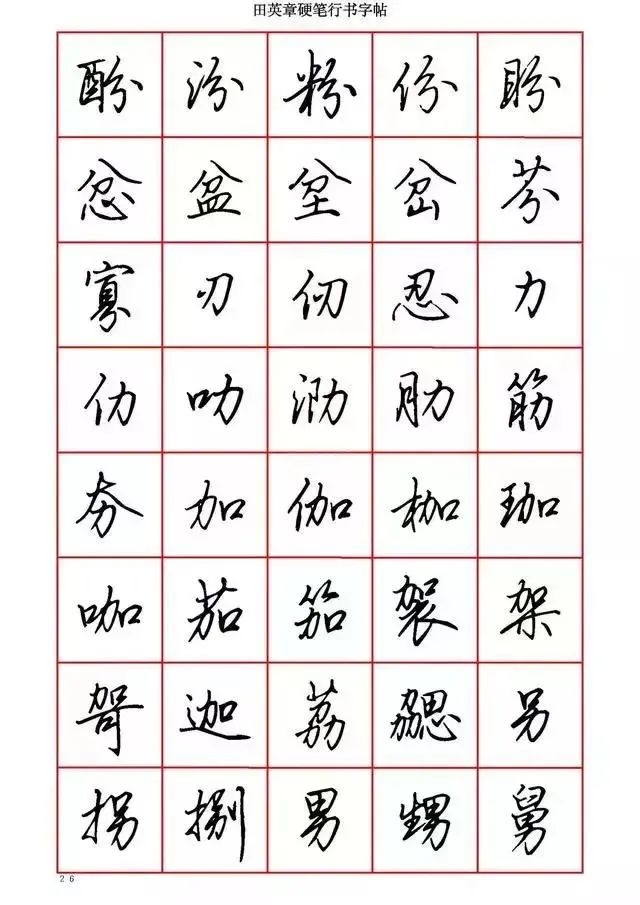 田英章硬笔行书字帖
酚汾粉份盼
忿盆坌岔芬
寡刃仞忍力
仂叻泐肋筋
夯加伽枷珈
咖茄笳袈架
哿迦荔勰另
拐捌男甥舅
26